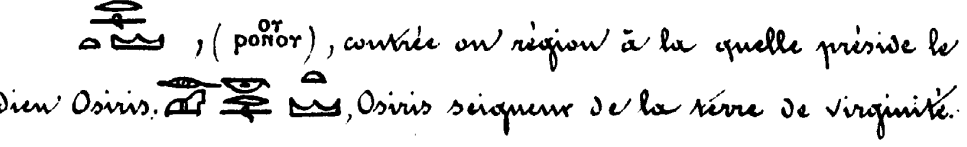 , (ⲣⲟⲛⲟⲩ), contrée ou région à la quelle préside le
dieu Osiris. , Osiris seigneur de la terre de virginité.